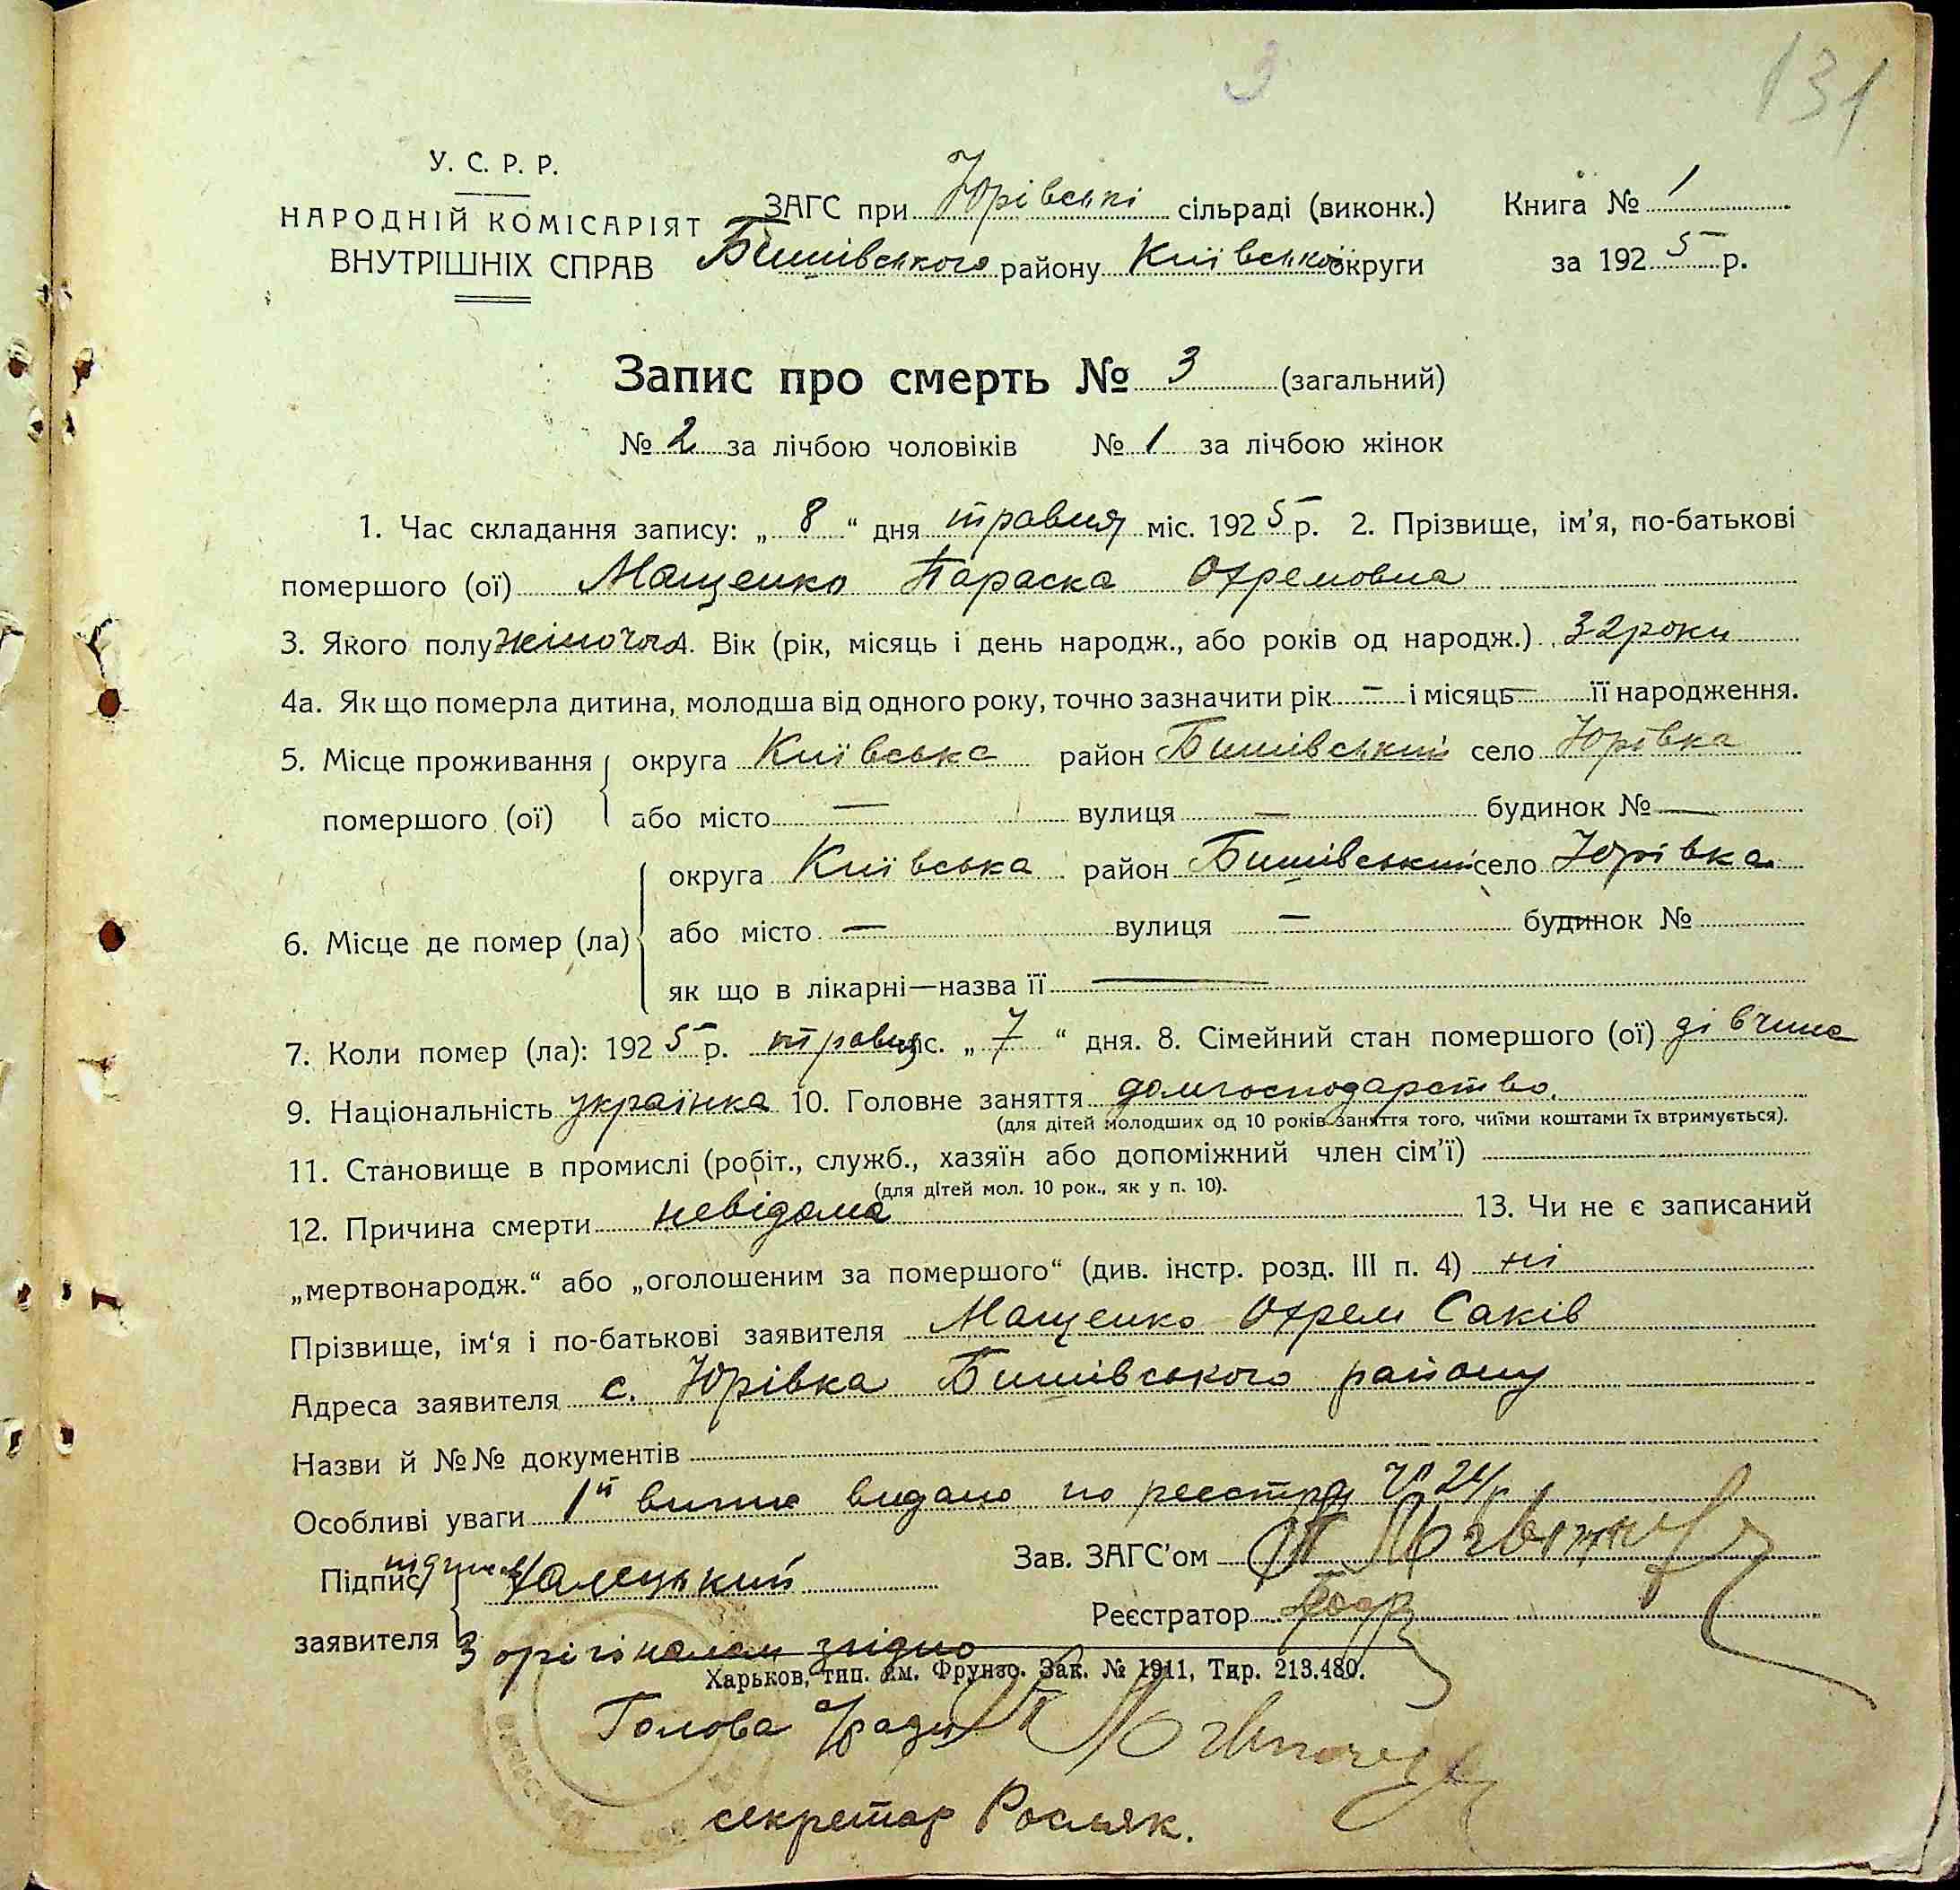 9
131
У. С. Р. Р.
НАРОДНІЙ КОМІСАРІЯТ
ВНУТРІШНІХ СПРАВ
ЗАГС при Юрівські сільраді (виконк.)
Бишівського району Київської округи
Книга № 1
за 1925 р.
Запис про смерть № 3 (загальний)
№ 2 за лічбою чоловіків № 1 за лічбою жінок
1. Час складання запису: „ 8 “ дня травня міс. 1925 р. 2. Прізвище, ім’я, по-батькові
помершого (ої) Мащенко Параска Охремовна
3. Якого полу жіночого 4. Вік (рік, місяць і день народж., або років од народж.) 32 роки
4а. Як що померла дитина, молодша від одного року, точно зазначити рік — і місяць — її народження.
5. Місце проживання помершого (ої) округа Київська район Бишівський село Юрівка
або місто — вулиця — будинок № —
6. Місце де помер (ла) округа Київська район Бишівський село Юрівка
або місто — вулиця — будинок №
як що в лікарні—назва її —
7. Коли помер (ла): 1925 р. травня міс. „ 7 “ дня. 8. Сімейний стан помершого (ої) дівчина
9. Національність українка 10. Головне заняття домгосподарство.
(для дітей молодших од 10 років заняття того, чиїми коштами їх втримується).
11. Становище в промислі (робіт., служб., хазяїн або допоміжний член сім’ї)
(для дітей мол. 10 рок., як у п. 10).
12. Причина смерти невідома 13. Чи не є записаний
„мертвонародж.“ або „оголошеним за помершого“ (див. інстр. розд. III п. 4) ні
Прізвище, ім’я і по-батькові заявителя Мащенко Охрем Саків
Адреса заявителя с. Юрівка Бишівського району
Назви й №№ документів
Особливі уваги 1й випис видано по реєстру № 24
Підпис заявителя
Зав. ЗАГС’ом
Реєстратор
З орігіналом згідно
Харьков, тип. им. Фрунзе. Зак. № 1911, Тир. 213.480.
Голова с/ради
секретар Росляк.